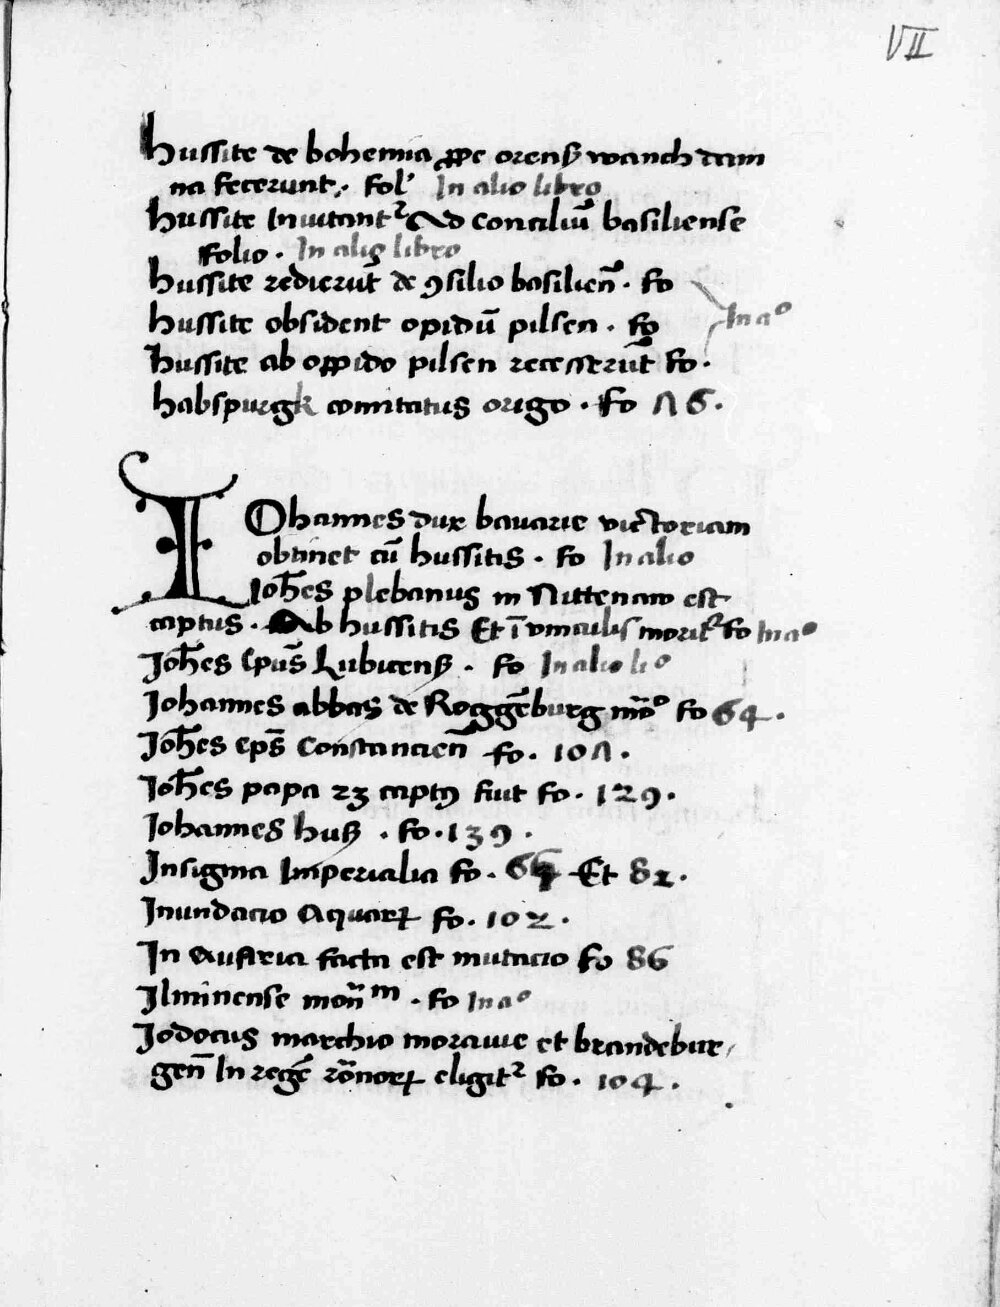 VII
Hussite de bohemia ꝓpe orenß wanch dam
na fecerunt. Fol' In alio libro
hussite Inuitantr Ad conciliū basiliense
Folio . In alio libro
hussite redierūt de ꝯsilio basilien̄ . fo
hussite obsident opidū pilsen . fo In ao
hussite ab oppido pilsen recesserūt fo .
habspurgk comitatus origo . fo Λ6 .
IOhannes dux bauarie victoriam
obtinet cū hussitis . fo In alio
Joh̄es plebanus in Nittenaw est
captus . Ab hussitis Et ī vinculis moritr fo In ao
Joh̄es Ep̄us Lubucenß . fo In alio lio
Johannes abbas de Roggēburg mōo fo 64 .
Joh̄es ep̄s Constancien̄ fo . 10Λ .
Joh̄es papa 23 captꝯ fuit fo . 129 .
Johannes huß . fo . 139 .
Insignia Imperialia fo . Et 82 .
Inundacio Aquarꝝ fo . 102 .
In Austria facta est mutacio fo 86
Ilminense mon̄m . fo In ao
Jodocus marchio morauie et brandebur
gen̄ In regē rōnorꝝ eligitr fo . 104 .